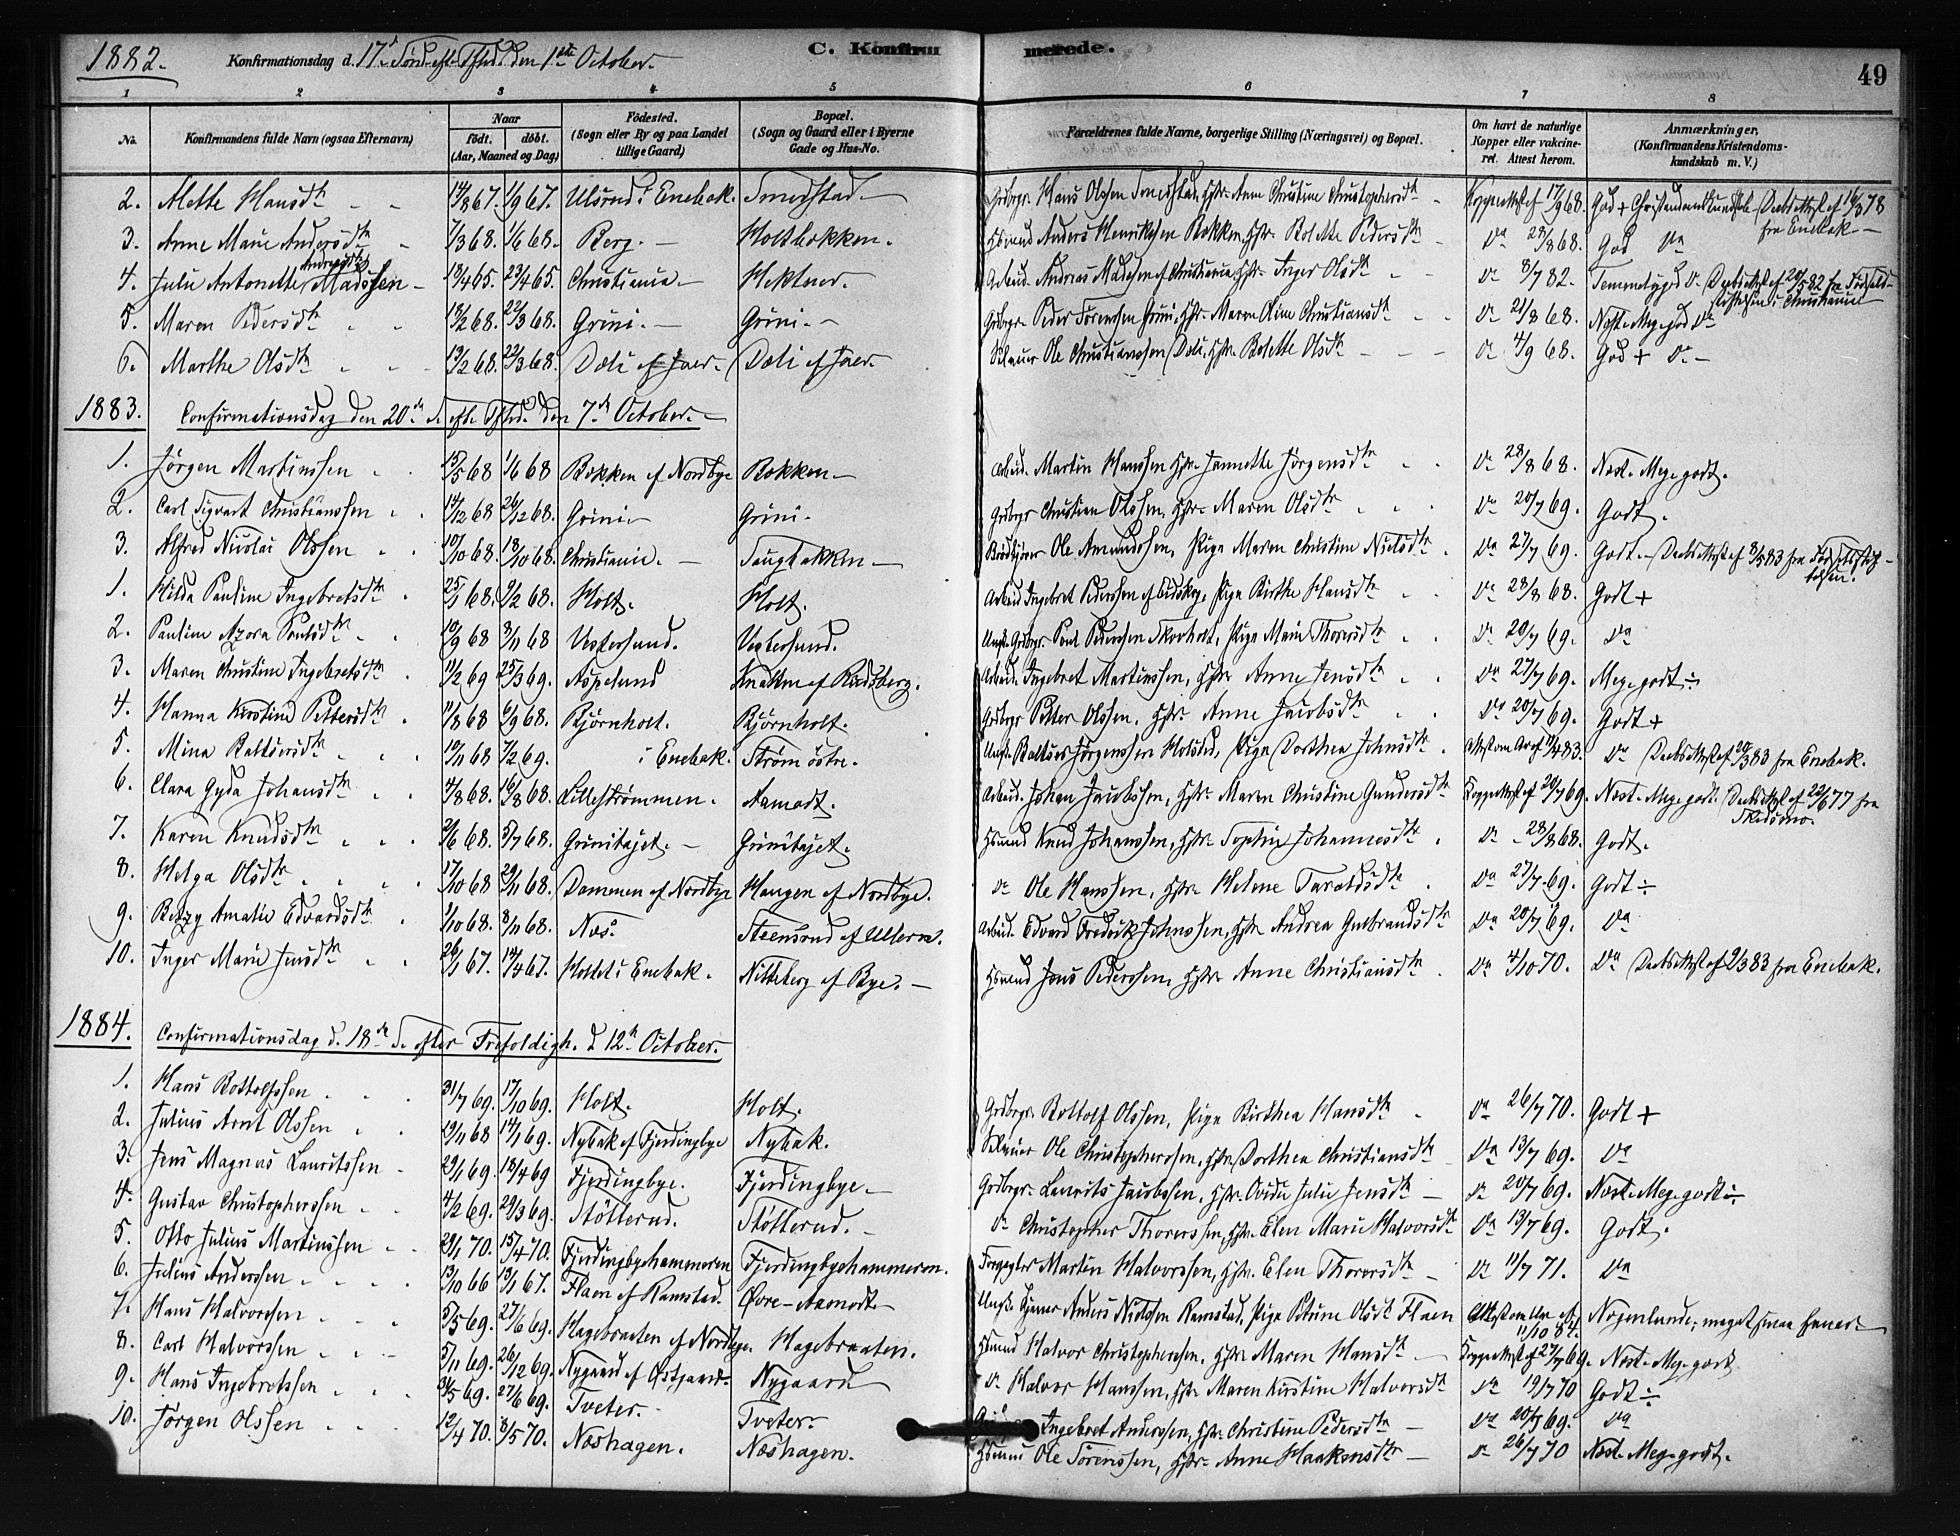 1882. Konfirmationsdag d. 17d Sönd. eft. Tftd. den 1ste October. C. Konfirmerede. 49
1 2 3 4 5 6 7 8
No. Konfirmandens fulde Navn (ogsaa Efternavn) Naar født. døbt. (Aar, Maaned og Dag) Fødested. (Sogn eller By og paa Landet tillige Gaard) Bopæl. (Sogn og Gaard eller i Byerne Gade og Hus-No. Forældrenes fulde Navne, borgerlige Stilling (Næringsvei) og Bopæl. Om havt de naturlige Kopper eller vakcineret. Attest herom. Anmærkninger, (Konfirmandens Kristendomskundskab m. V.)
2. Mette Hansdtr 14/8 67. 1/9 67. Ulsrud i Enebak. Smedstad Grdbrgr. Hans Olssen Smedstad, Hstr. Anne Christine Christophersdtr Koppeattest af 17/9 68. God + Christendomskundskab Daabsattest af 16/3 78 fra Enebak
3. Anne Marie Andersdtr 7/3 68. 1/6 68. Berg. Holtbakken. Hsmand Anders Henrikssen Bakken, Hstr. Bolette Pedersdtr Do 28/8 68. God Do
4. Julie Antonette Andreasdtr Madssen 13/4 65. 23/4 65. Christiania Hektner. Arbeid. Andreas Madssen af Christiania, Hstr. Inger Olsdtr Do 8/7 82. Temmelig god Do. Daabsattest af 20/5 82 fra Fødselsstiftelsen i Christiania
5. Maren Pedersdtr 13/2 68. 22/3 68. Grini. Grini. Grdbrgr. Peder Sørenssen Grini, Hstr. Maren Oline Christiansdtr Do 21/8 68. Næst. Meg. god Do
6. Marthe Olsdtr 13/2 68. 22/3 68. Dæli af Jaer. Dæli af Jaer. Selveier Ole Christianssen Dæli, Hstr. Bolette Olsdtr Do 4/9 68. God + Do
1883. Confirmationsdag den 20de S. efter Tftd. den 7de October.
1. Jörgen Martinssen 15/5 68 1/6 68 Bakken af Nordbye Bakken Arbeid. Martin Hanssen, Hstr. Jannette Jörgensdtr Do 28/8 68. Næst. Meg. godt.
2. Carl Sigvart Christianssen 14/12 68 26/12 68. Grini Grini. Grdbrgr Christian Olssen, Hstr. Maren Olsdtr Do 20/7 69. Godt.
3. Alfred Nicolai Olssen 10/10 68. 18/10 68. Christiania. Saugbakken Ole Amundssen, Pige Maren Christine Nielsdtr Do 27/7 69. Godt. Daabsattest af 8/5 83 fra Fødselsstiftelsen.
1. Hilda Pauline Ingebretsdtr 25/1 68. 9/2 68. Holt. Holt. Arbeid Ingebret Pederssen af Eidskog, Pige Birthe Hansdtr Do 28/8 68. Godt +
2. Pauline Azora Poulsdtr 10/9 68 8/11 68 Vestersund. Vestersund. Ungk. Grdbrgr. Poul Pederssen Skovholt, Pige Marie Thorersdtr Do 20/7 69. Do
3. Maren Christine Ingebretsdtr 11/2 69 25/3 69. Aspelund Knatten af Rudsberg. Arbeid. Ingebret Martinssen, Hstr. Anne Jensdtr Do 27/7 69. Meg. godt ÷
4. Hanna Kirstine Pettersdtr 11/8 68 6/9 68. Bjørnholt. Bjørnholt. Grdbrgr Petter Olssen, Hstr. Anne Jacobsdtr Do 20/7 69. Godt +
5. Mina Baltsersdtr 10/11 68 7/2 69. i Enebak. Strøm östre. Ungk. Baltser Jörgenssen Holstad, Pige Dorthea Johnsdtr. Attest om Ar af 11/4 83. Do Daabsattest af 20/3 83 fra Enebak.
6. Clara Gyda Johansdtr 4/8 68. 16/8 68. Lillestrømmen. Aamodt. Arbeid. Johan Jacobssen, Hstr. Maren Christine Gundersdtr Koppeattest af 20/7 69. Næst. Meg. godt. Daabsattest af 22/6 77 fra Skedsmo.
7. Karen Knudsdtr 2/6 68. 5/7 68. Grinitajet. Grinitajet. Hsmand Knud Johanssen, Hstr. Sophie Johannesdtr Do 28/8 68. Godt.
8. Helga Olsdtr 17/10 68 29/11 68. Dammen af Nordbye Haugen af Nordbye. Do Ole Hanssen, Hstr. Helene Taraldsdtr Do 27/7 69. Godt ÷
9. Betzy Amalie Edvardsdtr 1/10 68. 8/11 68. Næs. Steensrud af Ullern. Arbeid. Edvard Fredrik Johnssen, Hstr. Andrea Gulbrandsdtr Do 20/7 69. Do
10. Inger Marie Jensdtr 26/1 67. 14/4 67. Holtet i Enebak. Nitteberg af Bye. Hsmand Jens Pederssen, Hstr. Anne Christiansdtr Do 4/10 70. Do Daabsattest af 2/3 83 fra Enebak.
1884. Confirmationsdag d. 18de S. efter Trefoldigh. d 12te October.
1. Hans Bottolfssen 31/7 69. 17/10 69. Holt. Holt. Grdbrgr. Bottolf Olssen, Pige Birthea Hansdtr Do 26/7 70. Godt +
2. Julius Arnt Olssen 19/11 68 14/1 69. Nybak af Fjerdingbye Nybak. Selveier Ole Christopherssen, Hstr. Dorthea Christiansdtr Do 13/7 69. Do
3. Jens Magnus Lauritssen 29/1 69. 18/4 69 Fjerdingbye. Fjerdingbye. Grdbrgr. Laurits Jacobssen, Hstr. Ovidia Julie Jensdtr Do 20/7 69. Næst. Meg. godt ÷
4. Gustav Christopherssen 4/2 69. 29/3 69. Støtterud. Støtterud. Do Christopher Thorerssen, Hstr. Elen Marie Halvorsdtr Do 13/7 69. Godt.
5. Otto Julius Martinssen 29/1 70. 15/4 70. Fjerdingbyehammeren Fjerdingbyehammeren. Forpagter Martin Halvorssen, Hstr. Elen Thorersdtr Do 11/7 71. Do
6. Julius Anderssen 13/10 66 13/1 67. Flaen af Ramstad. Øvre-Aamodt. Ungk. Anders Nielssen Ramstad, Pige Petrine Olsdtr Flaen Attest om Ar af 11/10 84. Nogenlunde, meget smaa Evner
7. Hans Halvorssen 5/5 69. 27/6 69. Hagebraaten af Nordbye. Hagebraaten. Hsmand Halvor Christopherssen, Hstr. Maren Hansdtr Koppeattest af 27/7 69. Næst. Meg. godt
8. Carl Halvorssen 5/11 69. 26/12 69. Nygaard af Østgaard. Nygaard Do Halvor Hanssen, Hstr. Maren Kirstine Halvorsdtr Do 19/7 70 Godt ÷
9. Hans Ingebretssen 31/5 69. 27/6 69. Tveter. Tveter. Ingebret Anderssen, Hstr. Christine Pedersdtr Do 20/7 69. Do
10. Jörgen Olssen 12/4 70. 8/5 70. Næshagen. Næshagen. Hsmand Ole Sörenssen, Hstr. Anne Haakensdtr Do 26/7 70 Næst. Meg. godt.